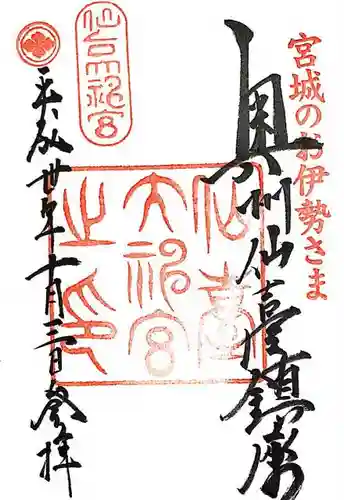 宮城のお伊勢さま
奥州仙臺鎮座
仙臺
大神宮
之印
仙台大神宮
平成廿年十月三日参拝